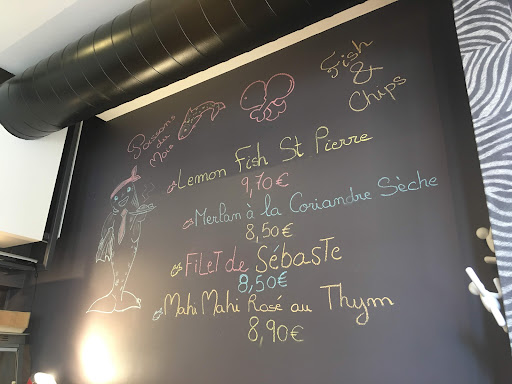 Poissons
du
Mois
Fish
&
Chips
Lemon Fish St Pierre
9,70€
Merlan à la Coriandre Sèche
8,50€
Filet de Sébaste
8,50€
Mahi Mahi Rosé au Thym
8,90€